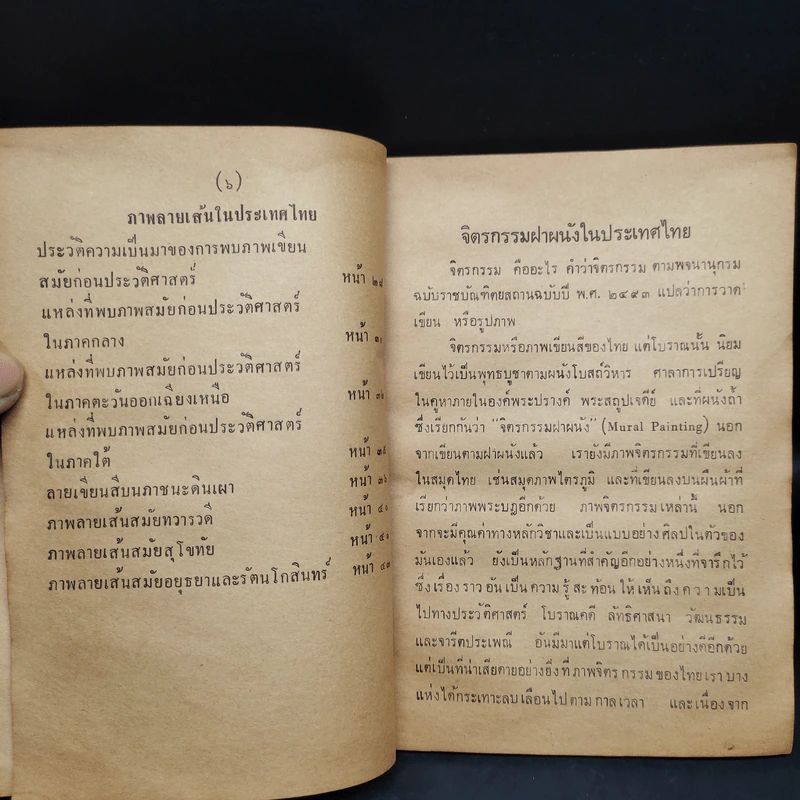 (๖)
ภาพลายเส้นในประเทศไทย
ประวัติความเป็นมาของการพบภาพเขียน
สมัยก่อนประวัติศาสตร์ หน้า ๒๘
แหล่งที่พบภาพสมัยก่อนประวัติศาสตร์
ในภาคกลาง หน้า ๓๑
แหล่งที่พบภาพสมัยก่อนประวัติศาสตร์
ในภาคตะวันออกเฉียงเหนือ หน้า
แหล่งที่พบภาพสมัยก่อนประวัติศาสตร์
ในภาคใต้ หน้า
ลายเขียนสีบนภาชนะดินเผา หน้า
ภาพลายเส้นสมัยทวารวดี หน้า ๔๐
ภาพลายเส้นสมัยสุโขทัย หน้า ๔๑
ภาพลายเส้นสมัยอยุธยาและรัตนโกสินทร์ หน้า ๔๓
จิตรกรรมฝาผนังในประเทศไทย
จิตรกรรม คืออะไร คำว่าจิตรกรรม ตามพจนานุกรม
ฉบับราชบัณฑิตยสถานฉบับปี พ.ศ. ๒๔๙๓ แปลว่าการวาด
เขียน หรือรูปภาพ
จิตรกรรมหรือภาพเขียนสีของไทย แต่โบราณนั้น นิยม
เขียนไว้เป็นพุทธบูชาตามผนังโบสถ์วิหาร ศาลาการเปรียญ
ในคูหาภายในองค์พระปรางค์ พระสถูปเจดีย์ และที่ผนังถ้ำ
ซึ่งเรียกกันว่า "จิตรกรรมฝาผนัง" (Mural Painting) นอก
จากเขียนตามฝาผนังแล้ว เรายังมีภาพจิตรกรรมที่เขียนลง
ในสมุดไทย เช่นสมุดภาพไตรภูมิ และที่เขียนลงบนผืนผ้าที่
เรียกว่าภาพพระบฏอีกด้วย ภาพจิตรกรรมเหล่านี้ นอก
จากจะมีคุณค่าทางหลักวิชาและเป็นแบบอย่าง ศิลปในตัวของ
มันเองแล้ว ยังเป็นหลักฐานที่สำคัญอีกอย่างหนึ่งที่จารึกไว้
ซึ่งเรื่องราวอันเป็นความรู้สะท้อนให้เห็นถึงความเป็น
ไปทางประวัติศาสตร์ โบราณคดี ลัทธิศาสนา วัฒนธรรม
และจารีตประเพณี อันมีมาแต่โบราณได้เป็นอย่างดีอีกด้วย
แต่เป็นที่น่าเสียดายอย่างยิ่งที่ภาพจิตรกรรมของไทยเราบาง
แห่งได้กระเทาะลบเลือนไปตามกาลเวลา และเนื่องจาก